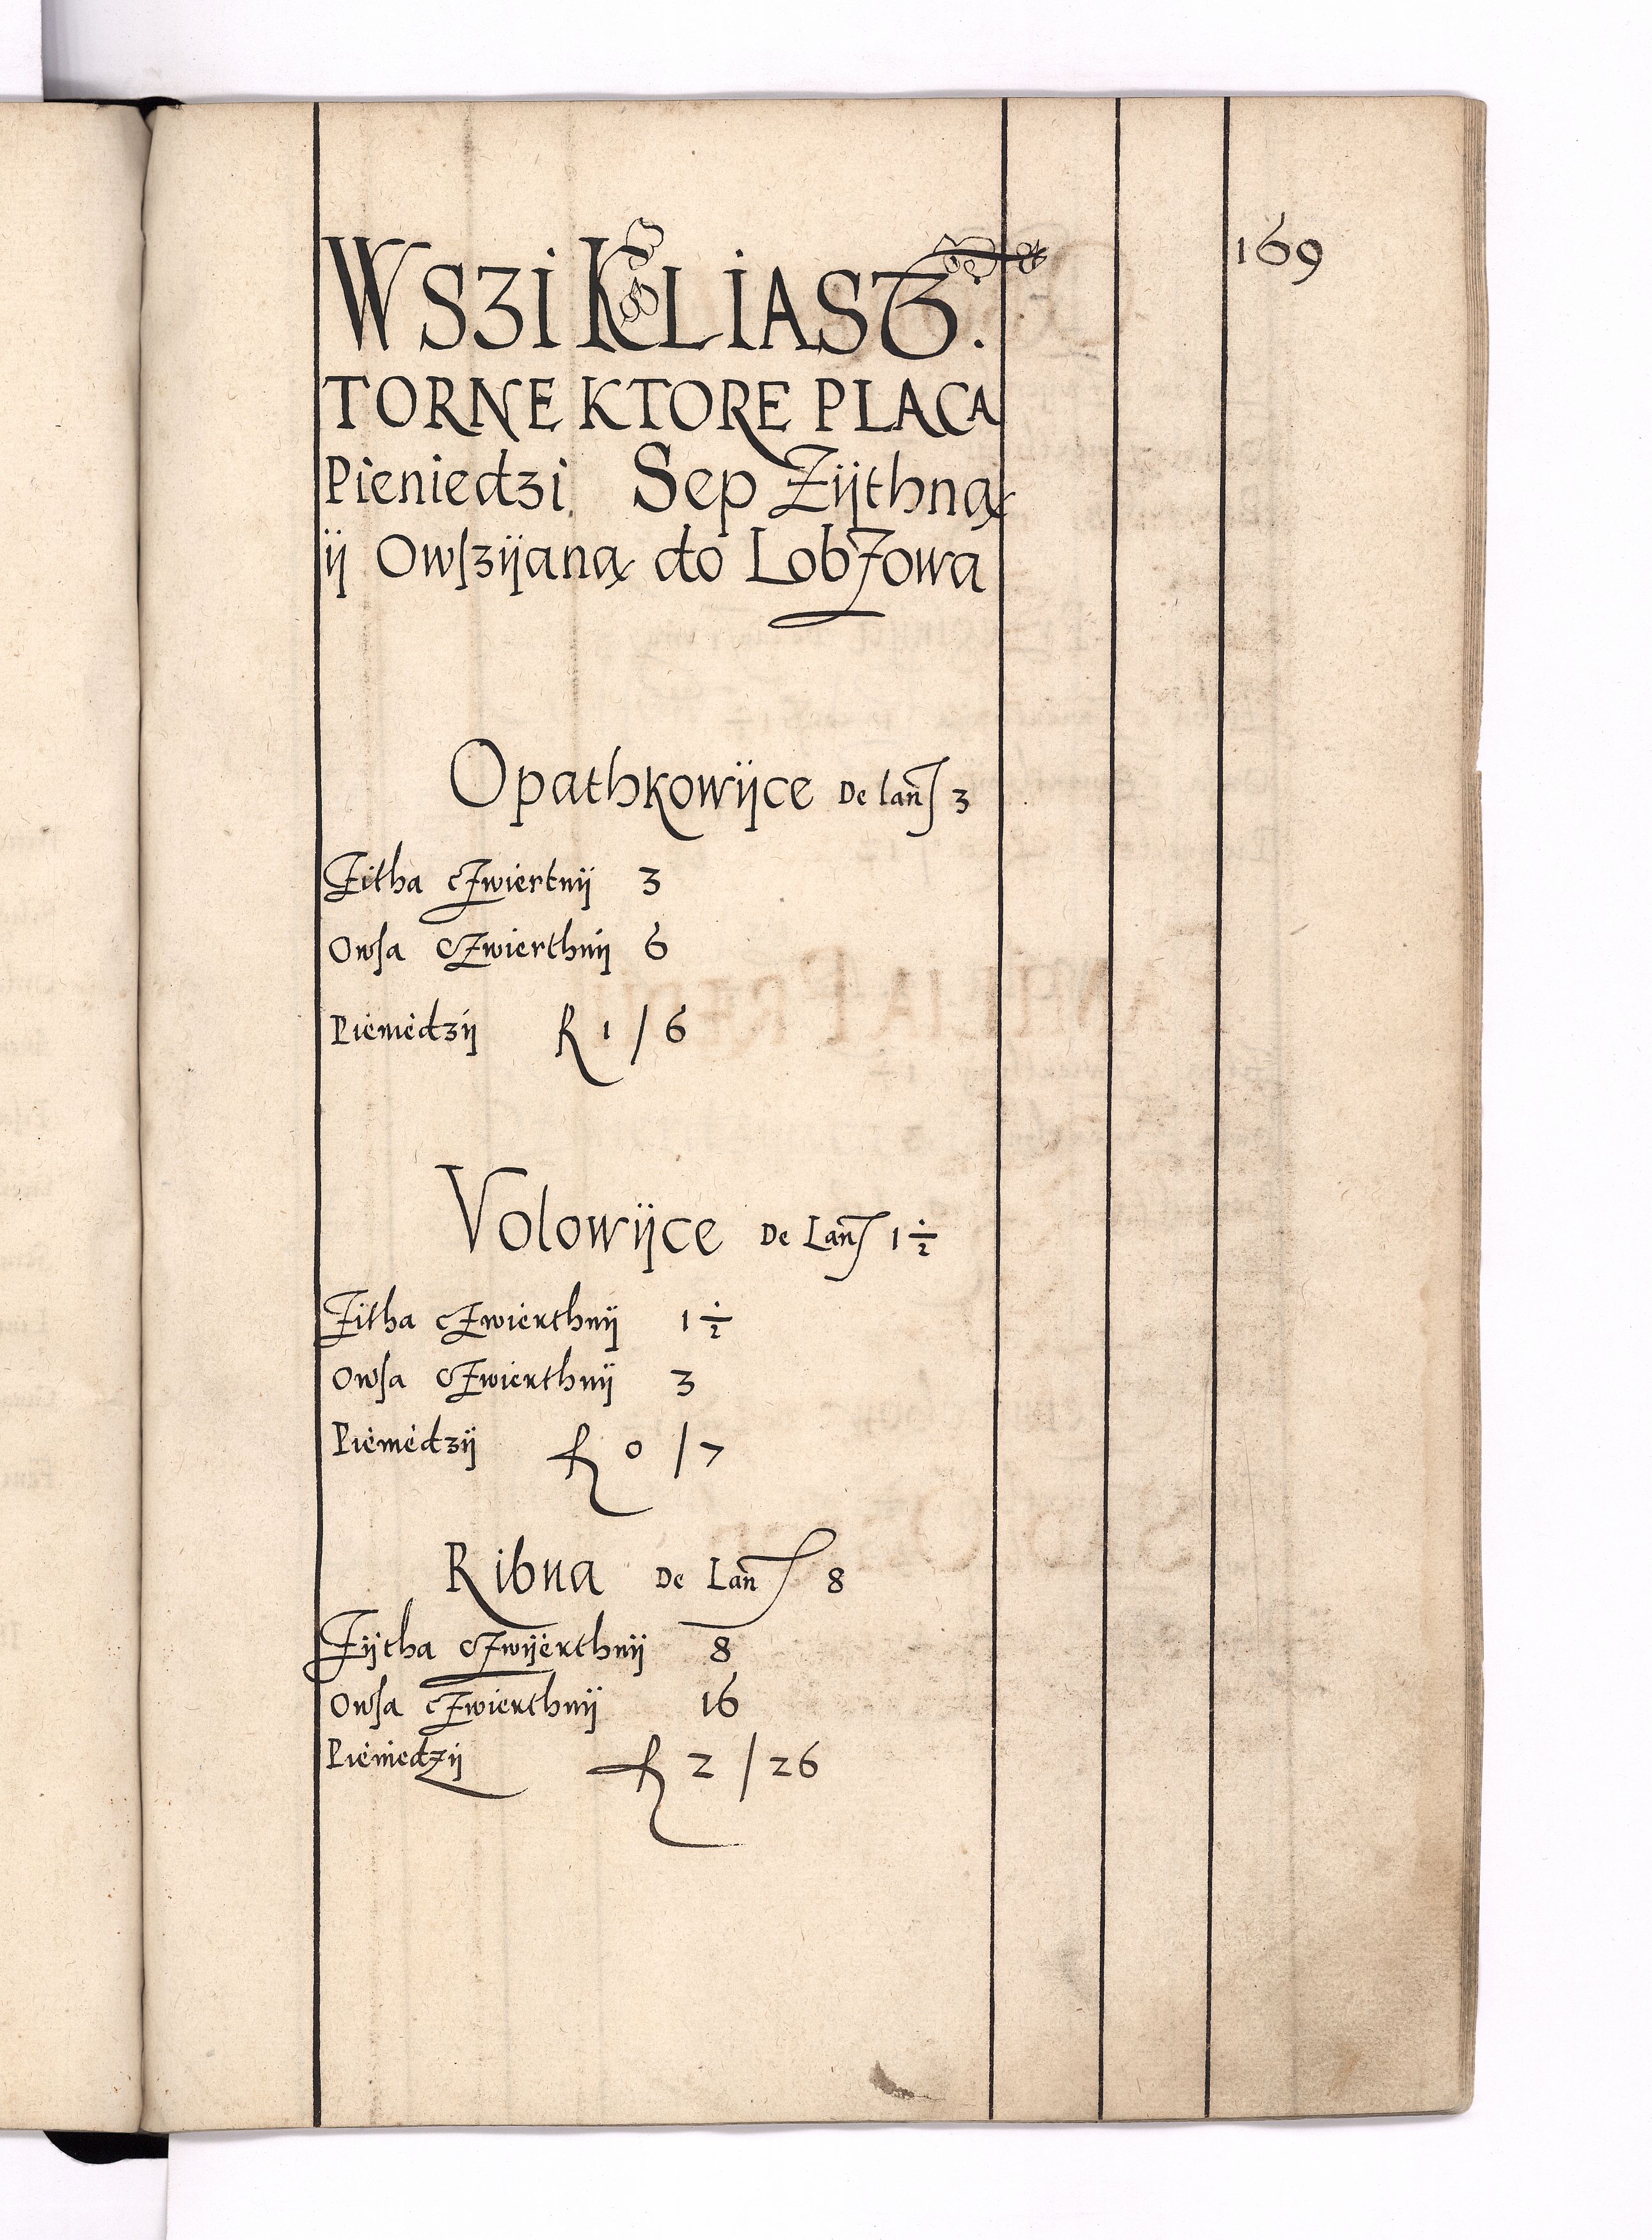 169
WSZI KLIASZ:
TORNE KTORE PLACA
Pieniedzi Sep Zijthną
ij Owſzijaną do Lobzowa
Opathkowijce De lan̄ 3
Zitha czwiertnij 3
Owſa czwierthnij 6
Pieniedzij R 1 / 6
Volowijce De Lan̄ 1 ½
Zitha czwierthnij 1 ½
Owſa czwierthnij 3
Pieniedzij R 0 / 7
Ribna De Lan̄ 8
Zijtha czwijerthnij 8
Owſa czwierthnij 16
Pieniedzij R 2 / 26